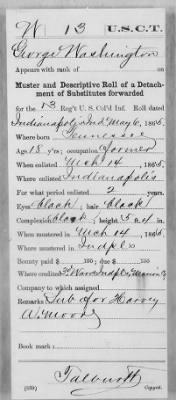 W 13 U.S.C.T.
George Washington
Appears with rank of
Muster and Descriptive Roll of a Detach-
ment of Substitutes forwarded
for the 13 Reg't U. S. Col'd Inf. Roll dated
Indianapolis Ind May 6, 1865.
Where born Tennessee
Age 18 y'rs; occupation Farmer
When enlisted Mch 14, 1865
Where enlisted Indianapolis
For what period enlisted 2 years.
Eyes black; hair black
Complexion black; height 5 ft. 4 in.
When mustered in Mch 14, 1865
Where mustered in Indpls
Bounty paid $ 100; due $ 100
Where credited Ward Indpls, Marion
Company to which assigned
Remarks: Sub for Harvey
A. Moore
Book mark:
(339) Copyist.